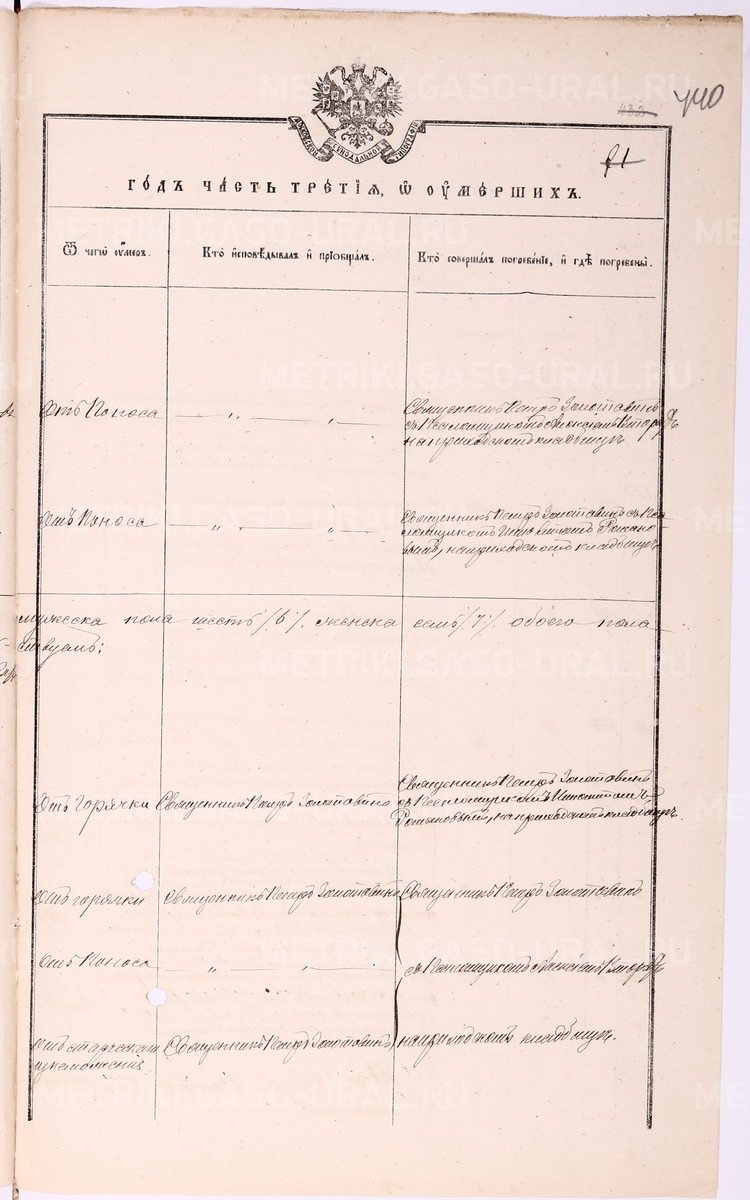 440
432
71
ГОДЪ ЧАСТЬ ТРЕТІЯ, Ѿ ОУМЕРШИХЪ.
Ѿ чегѡ оумеръ.
Кто исповѣдывалъ и пріобщалъ.
Кто совершалъ погребеніе, и гдѣ погребены.
Отъ Поноса — „ — „ —
Священникъ Петръ Золотавинъ
съ Псаломщикомъ Алексѣемъ
на приходскомъ кладбищѣ.
Отъ Поноса — „ — „ —
Священникъ Петръ Золотавинъ съ Пса
ломщикомъ Романо
вымъ, на приходскомъ кладбищѣ.
мужеска пола шесть /6/. женска семь /7/. обоего пола
ствуемъ:
Отъ горячки
Священникъ Петръ Золотавинъ
Священникъ Петръ Золотавинъ
съ Псаломщикомъ
Романовымъ, на приходскомъ кладбищѣ
отъ горячки
Священникъ Петръ Золотавинъ
Священникъ Петръ Золотавинъ
Отъ Поноса — „ — „ —
съ Псаломщикомъ Алексѣемъ
отъ старческаго
изнеможенія
Священникъ Петръ Золотавинъ,
на приходскомъ кладбищѣ.
METRIKI.GASO-URAL.RU